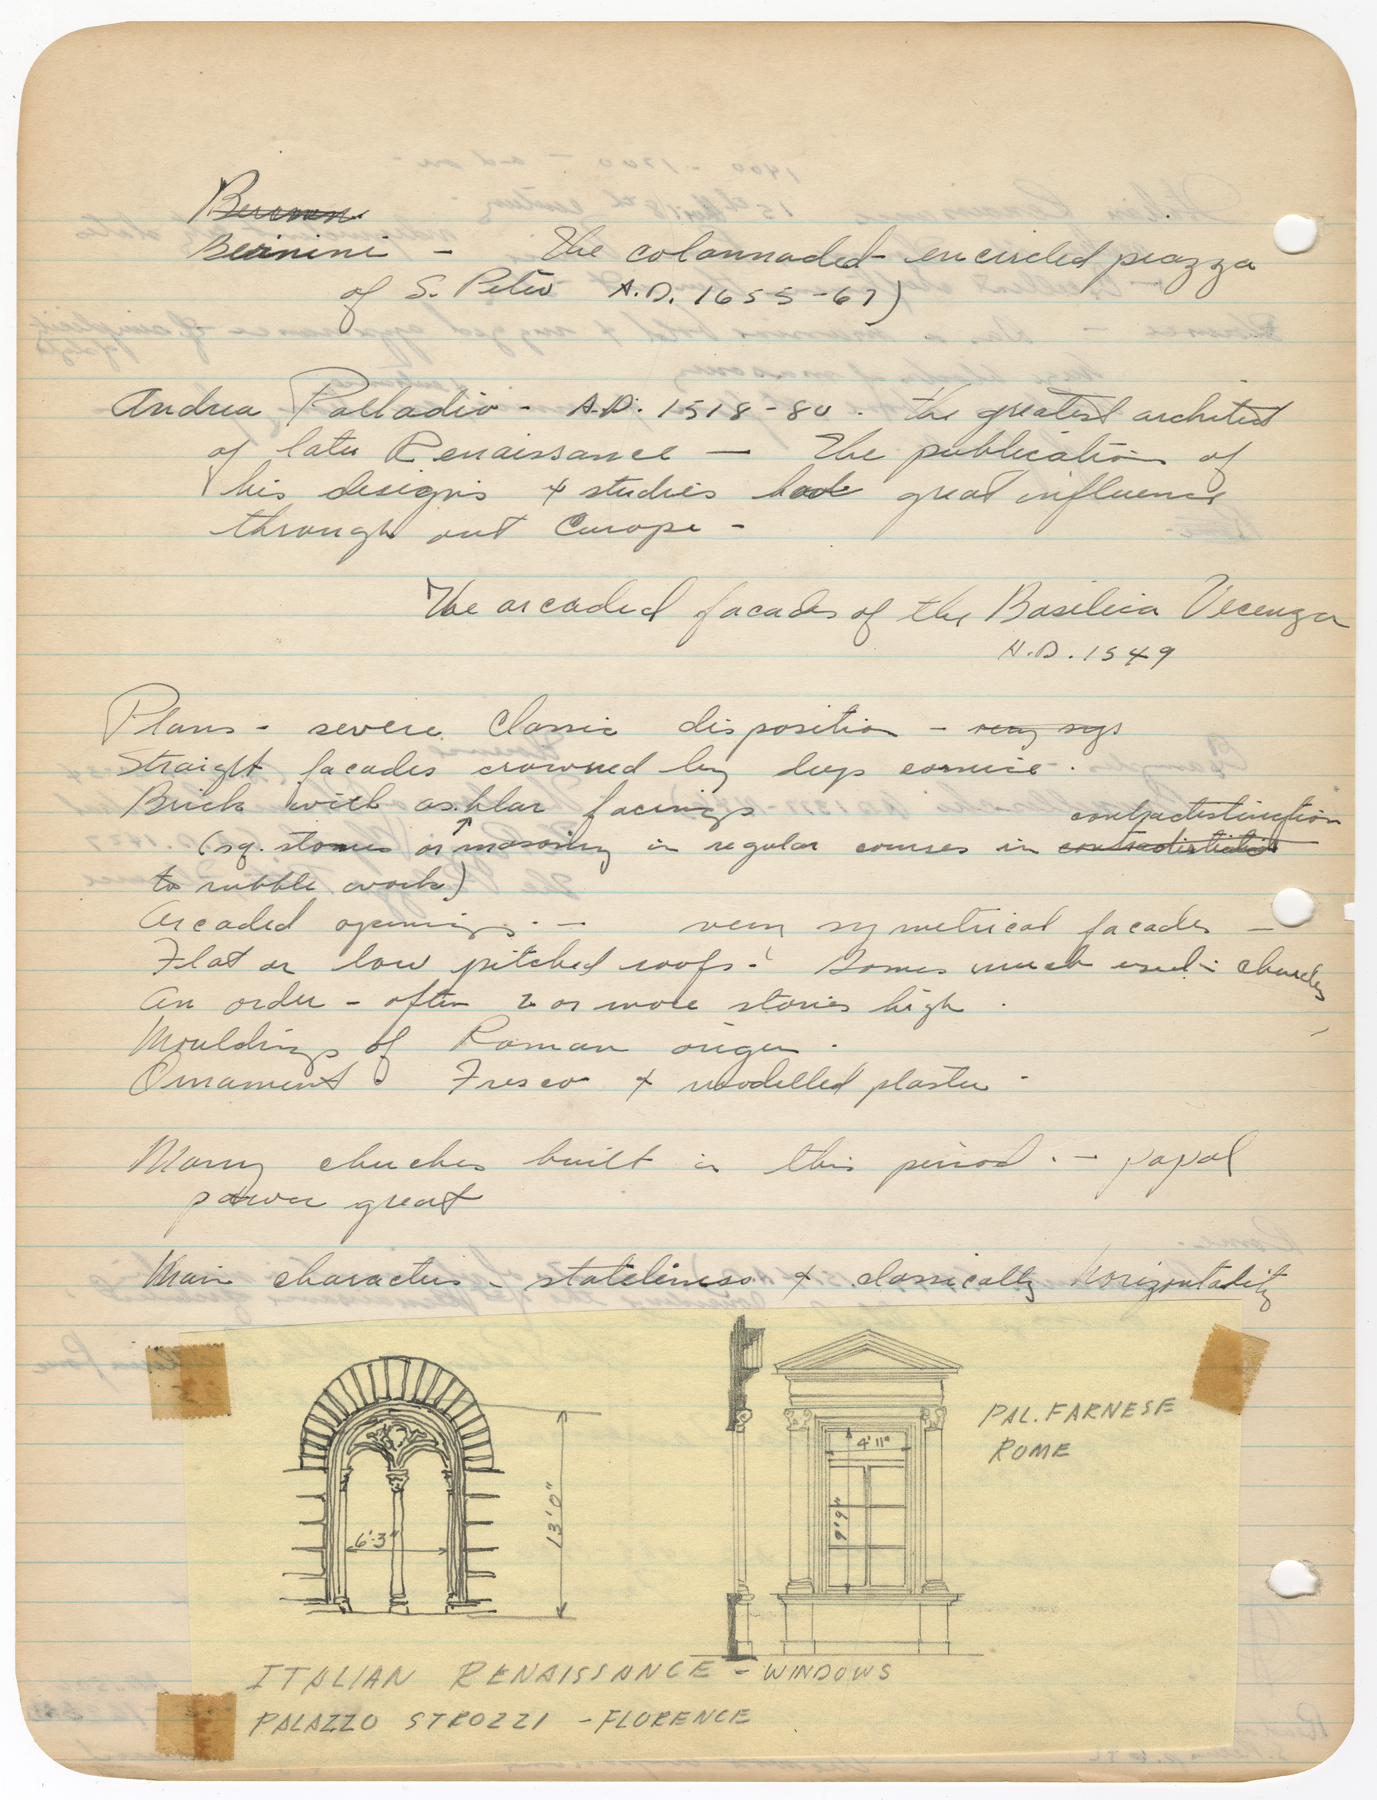 Bernini - The colonnaded encircled piazza
of S. Peter A.D. 1655-67)
Andrea Palladio - A.D. 1518-80. the greatest architect
of later Renaissance — The publication of
his designs & studies had great influence
through out Europe -
The arcaded facades of the Basilica Vecenza
A.D. 1549
Plans - severe Classic disposition - very
Straight facades crowned by deep cornice.
Brick with ashlar facings
contradistinction
(sq. stones or masonry in regular courses in
to rubble work)
Arcaded openings. - very symetrical facades -
Flat or low pitched roofs - Domes much used - churches
An order - often 2 or more stories high.
Mouldings of Roman origin.
Ornament Fresco & modelled plaster -
Many churches built in this period. - papal
power great
Main characters - stateliness & classically horizontality
PAL. FARNESE
ROME
4'11"
9'9"
6'-3"
13'0"
ITALIAN RENAISSANCE - WINDOWS
PALAZZO STROZZI - FLORENCE